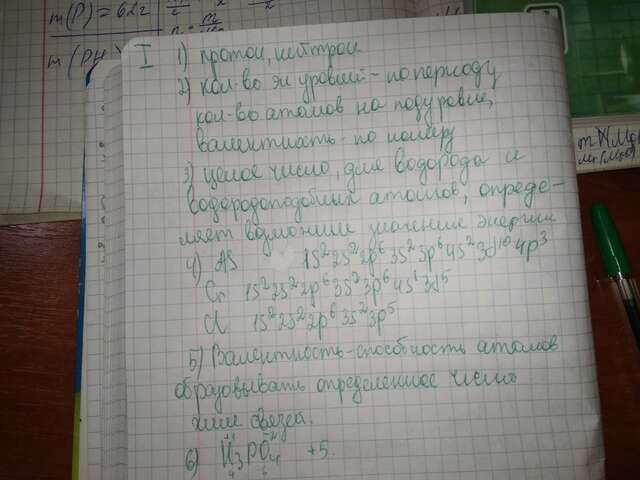 m(P) = 62г
m (PH
I 1) протон, нейтрон
2) кол-во эн уровней - по периоду
кол-во атомов на подуровне,
валентность - по номеру
3) целое число, для водорода и
водородоподобных атомов, опреде-
ляет возможные значение энергии
4) As 1s² 2s² 2p⁶ 3s² 3p⁶ 4s² 3d¹⁰ 4p³
Cr 1s² 2s² 2p⁶ 3s² 3p⁶ 4s¹ 3d⁵
Cl 1s² 2s² 2p⁶ 3s² 3p⁵
5) Валентность - способность атомов
образовывать определенное число
хим связей.
6) H₃PO₄ +5